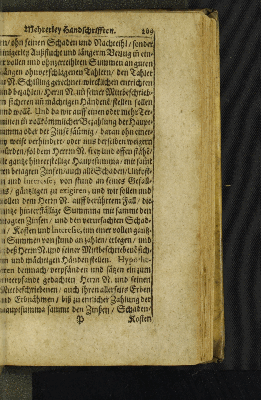 Mehrerley Handschrifften. 169
n/ ohn seinen Schaden und Nachtheil/ sonder
inigerley Außflucht und längerm Verzug in ein-
r vollen und ohnzertheilten Summen an guten
ängen ohnverschlagenen Tahlern/ den Tahler
u N. Schilling gerechnet wircklichen entrichten
und bezahlen/ Herrn N. und seiner Mitbeschrieb-
n sicheren und mächtigen Händen stellen sollen
nd wollē. Und da wir auff einen oder mehr Ter-
minen in vollkömmlicher Bezahlung der Haupt-
umma oder der Zinse säumig/ daran ohn eine-
ey weise verhindert/ oder uns derselben weigern
würden/ sol dem Herrn N. frey und offen stehē/
die gantze hinterstellige Hauptsumma/ mit samt
en betagten Zinsen/ auch alle Schaden/ Unkost-
en und interesse, von stund an seines Gefall-
ns/ gäntzlichen zu exigiren/ und wir sollen und
wollen dem Herrn N. auff berührtem Fall/ die
antze hinterställige Summma mit sammt den
etagten Zinsen/ und den verursachten Schad-
n/ Kosten und Interesse, in einer vollen gantz-
n Summen von stund an zahlen/ erlegen/ und
deß Herrn N. und seiner Mitbeschriebenē sich-
rn und mächtigen Händen stellen. Hypothe-
ciren demnach/ verpfänden und sätzen ein zum
unterpfande gedachten Herrn N. und seinen
Mitbeschriebenen/ auch ihren aller seits Erben
und Erbnähmen/ biß zu entlicher Zahlung der
Hauptsumma sammt den Zinsen/ Schaden/
P Kosten